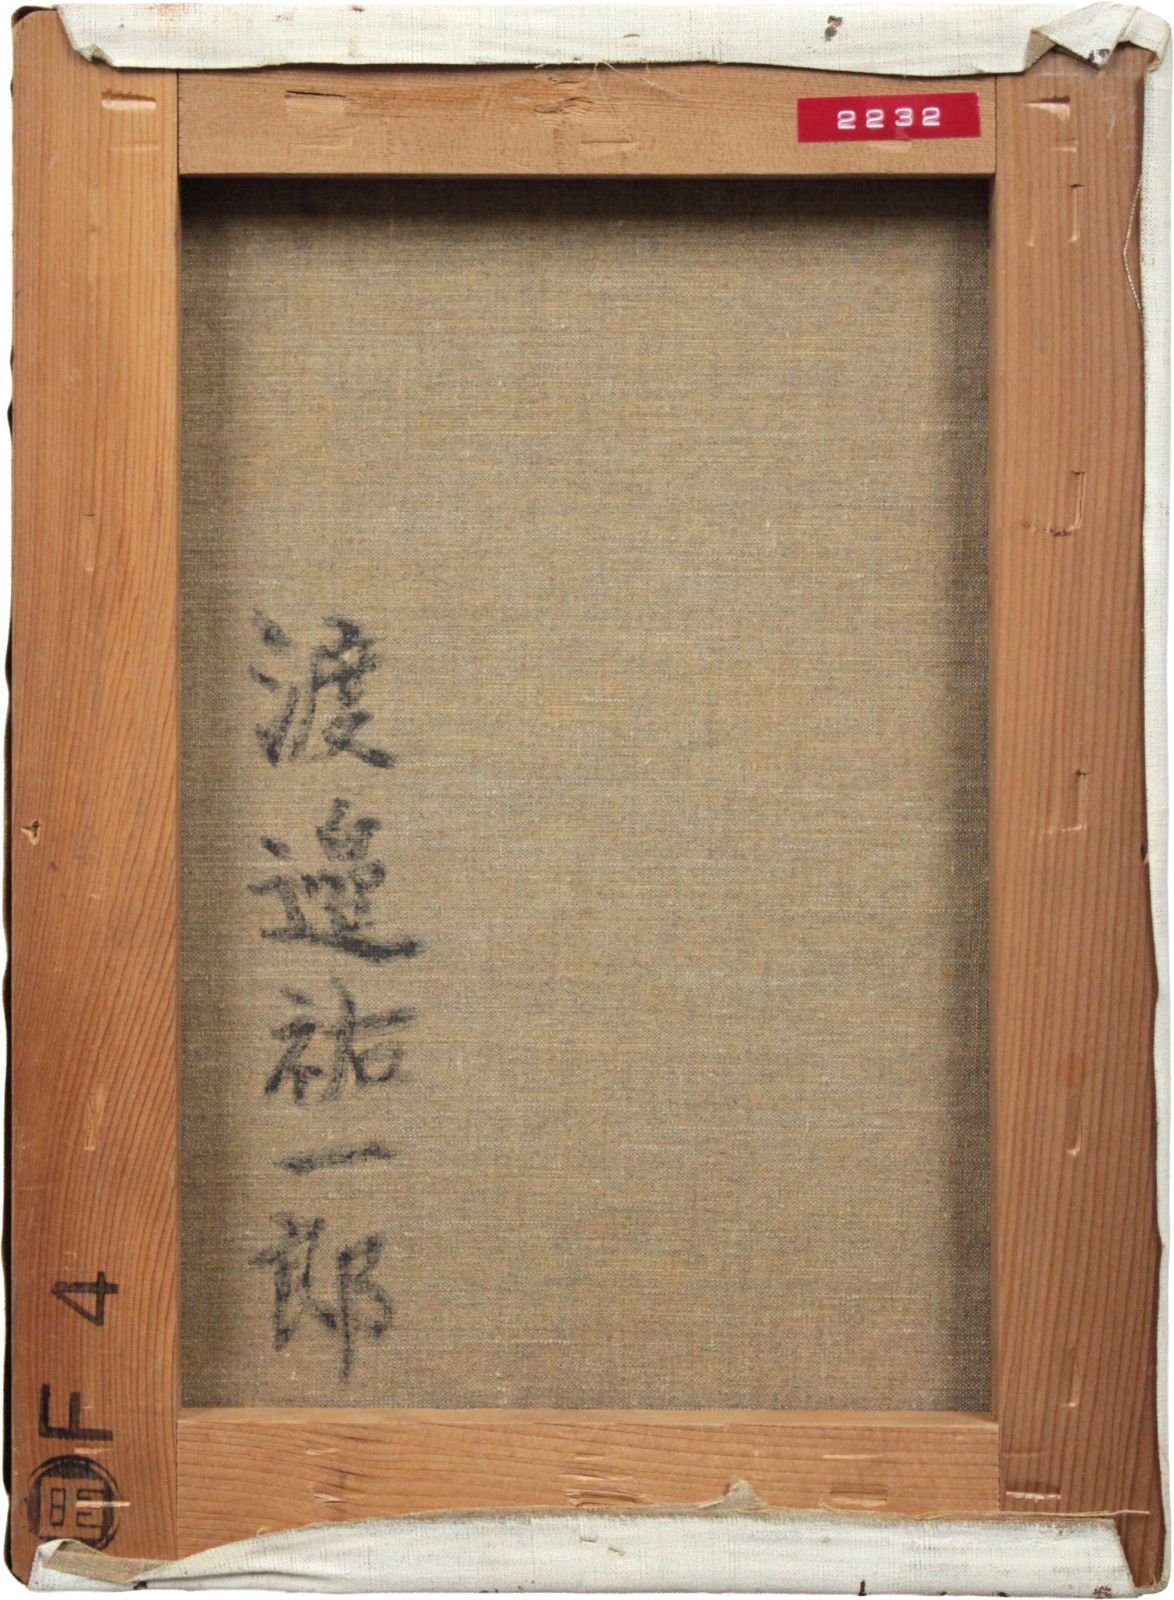 2232
渡邉祐一郎
F4